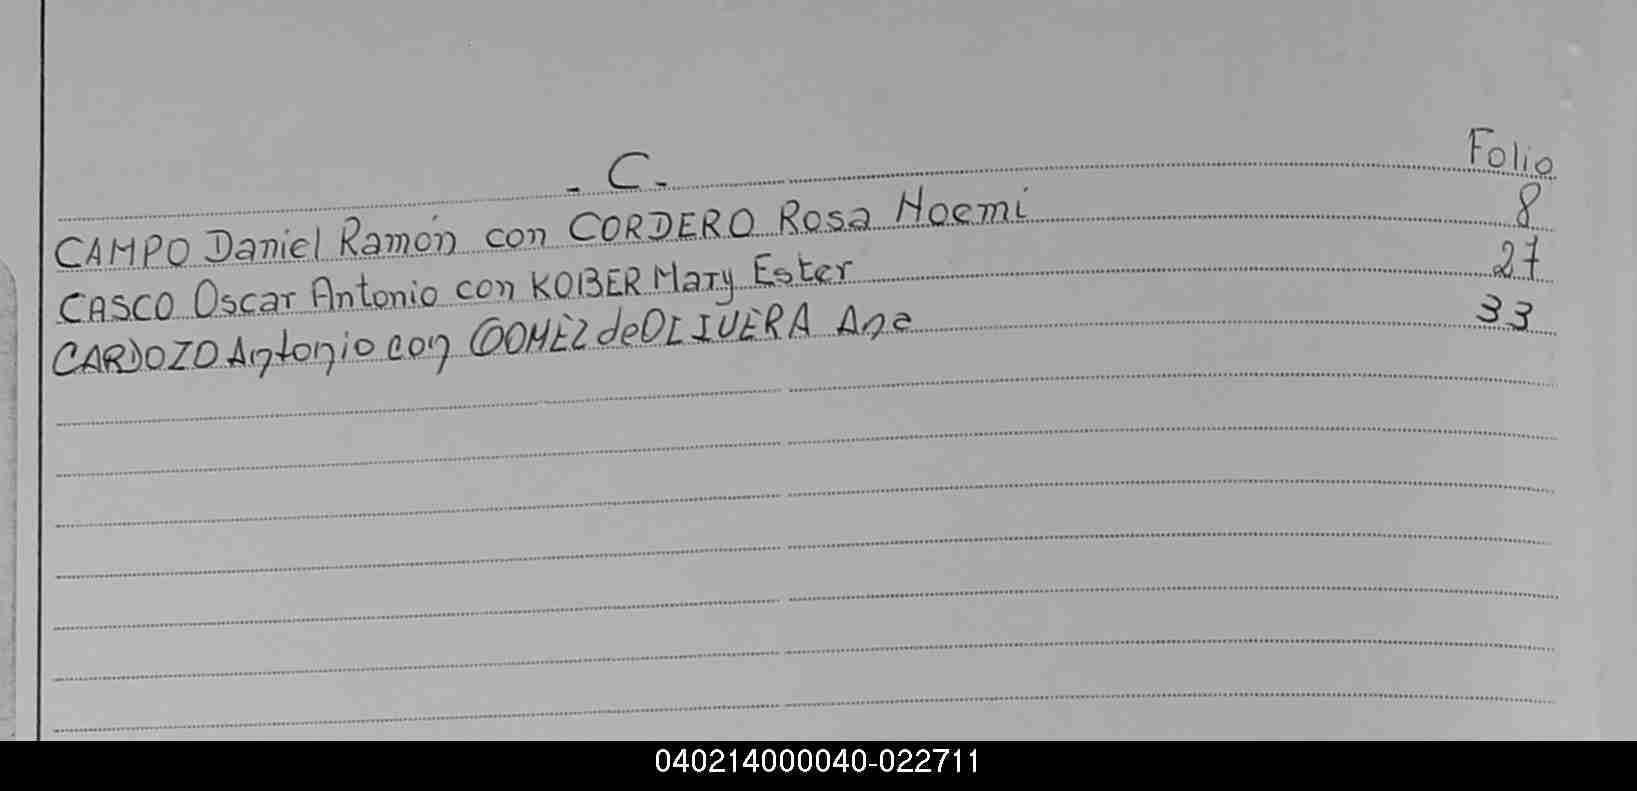 - C - Folio
CAMPO Daniel Ramón con CORDERO Rosa Noemi 8
CASCO Oscar Antonio con KOBER Mary Ester 27
CARDOZO Antonio con GOMEZ de OLIVERA Ana 33
040214000040-022711